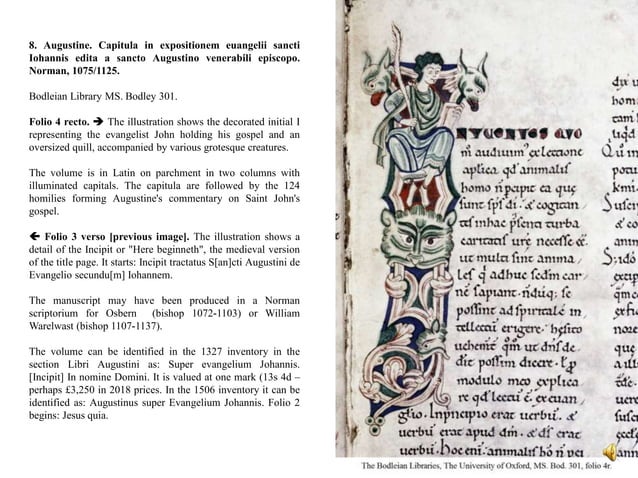 8. Augustine. Capitula in expositionem euangelii sancti
Iohannis edita a sancto Augustino venerabili episcopo.
Norman, 1075/1125.
Bodleian Library MS. Bodley 301.
Folio 4 recto. ➔ The illustration shows the decorated initial I
representing the evangelist John holding his gospel and an
oversized quill, accompanied by various grotesque creatures.
The volume is in Latin on parchment in two columns with
illuminated capitals. The capitula are followed by the 124
homilies forming Augustine's commentary on Saint John's
gospel.
🡸 Folio 3 verso [previous image]. The illustration shows a
detail of the Incipit or "Here beginneth", the medieval version
of the title page. It starts: Incipit tractatus S[an]cti Augustini de
Evangelio secundu[m] Iohannem.
The manuscript may have been produced in a Norman
scriptorium for Osbern (bishop 1072-1103) or William
Warelwast (bishop 1107-1137).
The volume can be identified in the 1327 inventory in the
section Libri Augustini as: Super evangelium Johannis.
[Incipit] In nomine Domini. It is valued at one mark (13s 4d –
perhaps £3,250 in 2018 prices. In the 1506 inventory it can be
identified as: Augustinus super Evangelium Johannis. Folio 2
begins: Jesus quia.
m audiuim ex lectione
aplica qd animalis
homo ñ pcipit ea que
sunt sps di. & cogitan
tes inhac psenti turba
caritatis ure necesse ee.
ut multi sint anima
les q adhuc scdm car
ne sapiant. ndũq; se
possint ad spiritale in
tellectũ erigere. hesito
uehemt qm ut dns de
dit possim dicere. l p
modulo meo explica
re qd lectũ e. ex euan
glio. Inprincipio erat uerbũ. &
uerbũ erat apud dm. & ds erat
uerbũ. hoc eni animalis hõ ñ pci
The Bodleian Libraries, The University of Oxford, MS. Bod. 301, folio 4r.